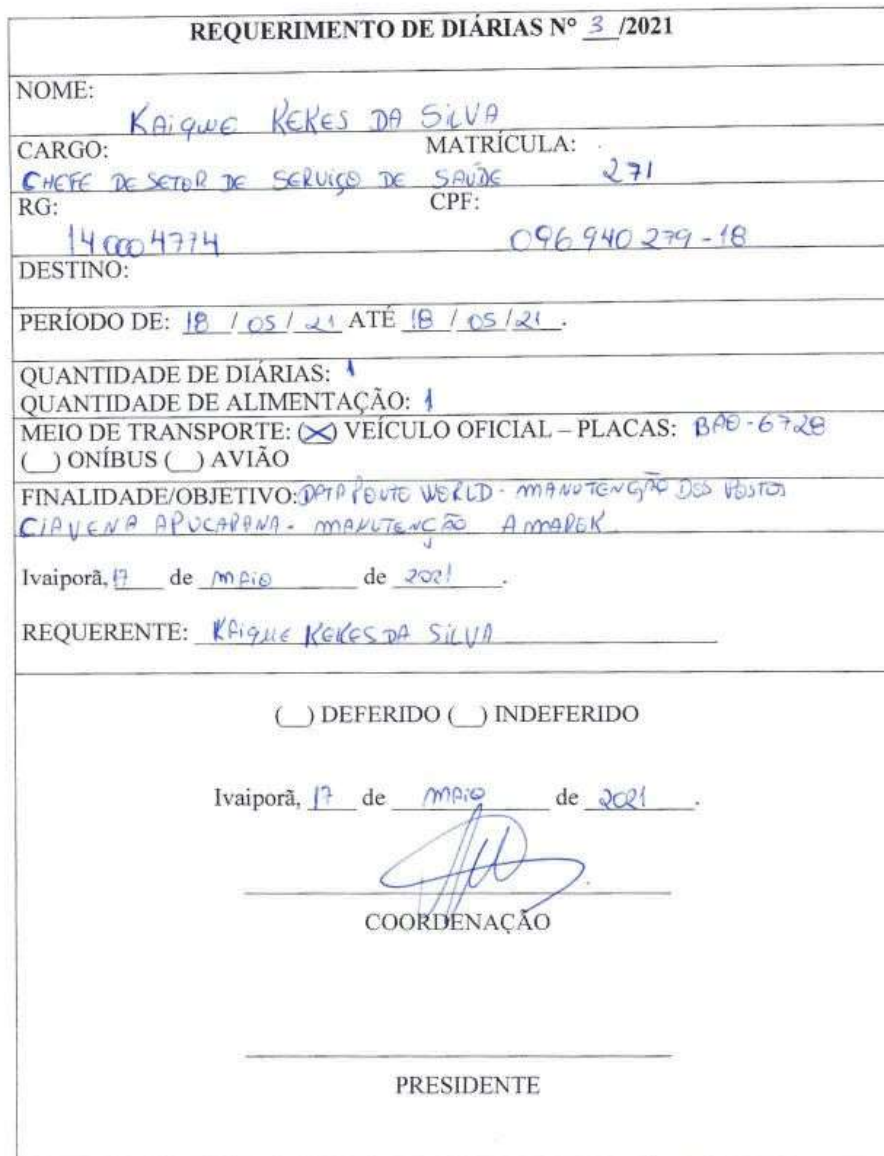 REQUERIMENTO DE DIÁRIAS Nº 3 /2021
NOME:
KAIQUE KEKES DA SILVA
CARGO: MATRÍCULA:
CHEFE DE SETOR DE SERVIÇO DE SAUDE 271
RG: CPF:
140004774 096 940 279-18
DESTINO:
PERÍODO DE: 18 / 05 / 21 ATÉ 18 / 05 / 21 .
QUANTIDADE DE DIÁRIAS: 1
QUANTIDADE DE ALIMENTAÇÃO: 1
MEIO DE TRANSPORTE: (X) VEÍCULO OFICIAL – PLACAS: -6728
(__) ONÍBUS (__) AVIÃO
FINALIDADE/OBJETIVO: WORLD - MANUTENÇÃO DOS POSTOS
CIAVENA APUCARANA - MANUTENÇÃO AMAROK
Ivaiporã, 17 de MAIO de 2021 .
REQUERENTE: KAIQUE KEKES DA SILVA
(__) DEFERIDO (__) INDEFERIDO
Ivaiporã, 17 de MAIO de 2021 .
COORDENAÇÃO
PRESIDENTE